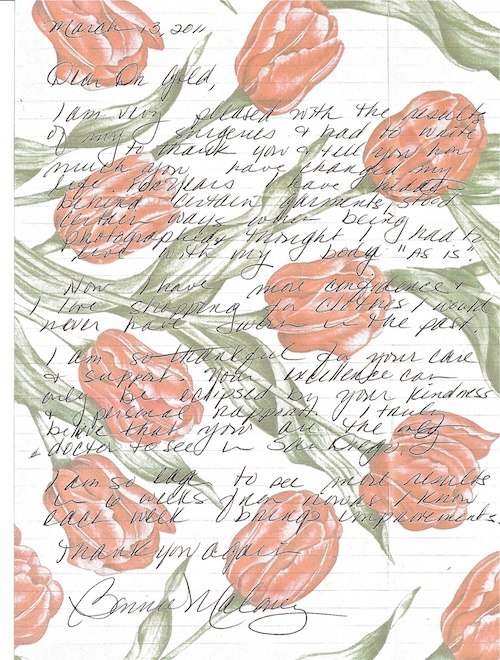 March 13, 2011
Dear Dr Gold,
I am very pleased with the results
of my surgeries & had to write
to thank you & tell you how
much you have changed my
life. For years I have hidden
behind certain garments, stood
certain ways when being
photographed & thought I had to
live with my body "AS IS".
Now I have more confidence &
I love shopping for clothes I would
never have worn in the past.
I am so thankful for your care
& support. Your excellence can
only be eclipsed by your kindness
& personal rapport. I truly
believe that you are the only
doctor to see in San Diego.
I am so eager to see more results
in 6 weeks from now as I know
each week brings improvements.
Thank you again
Bonnie Maloney